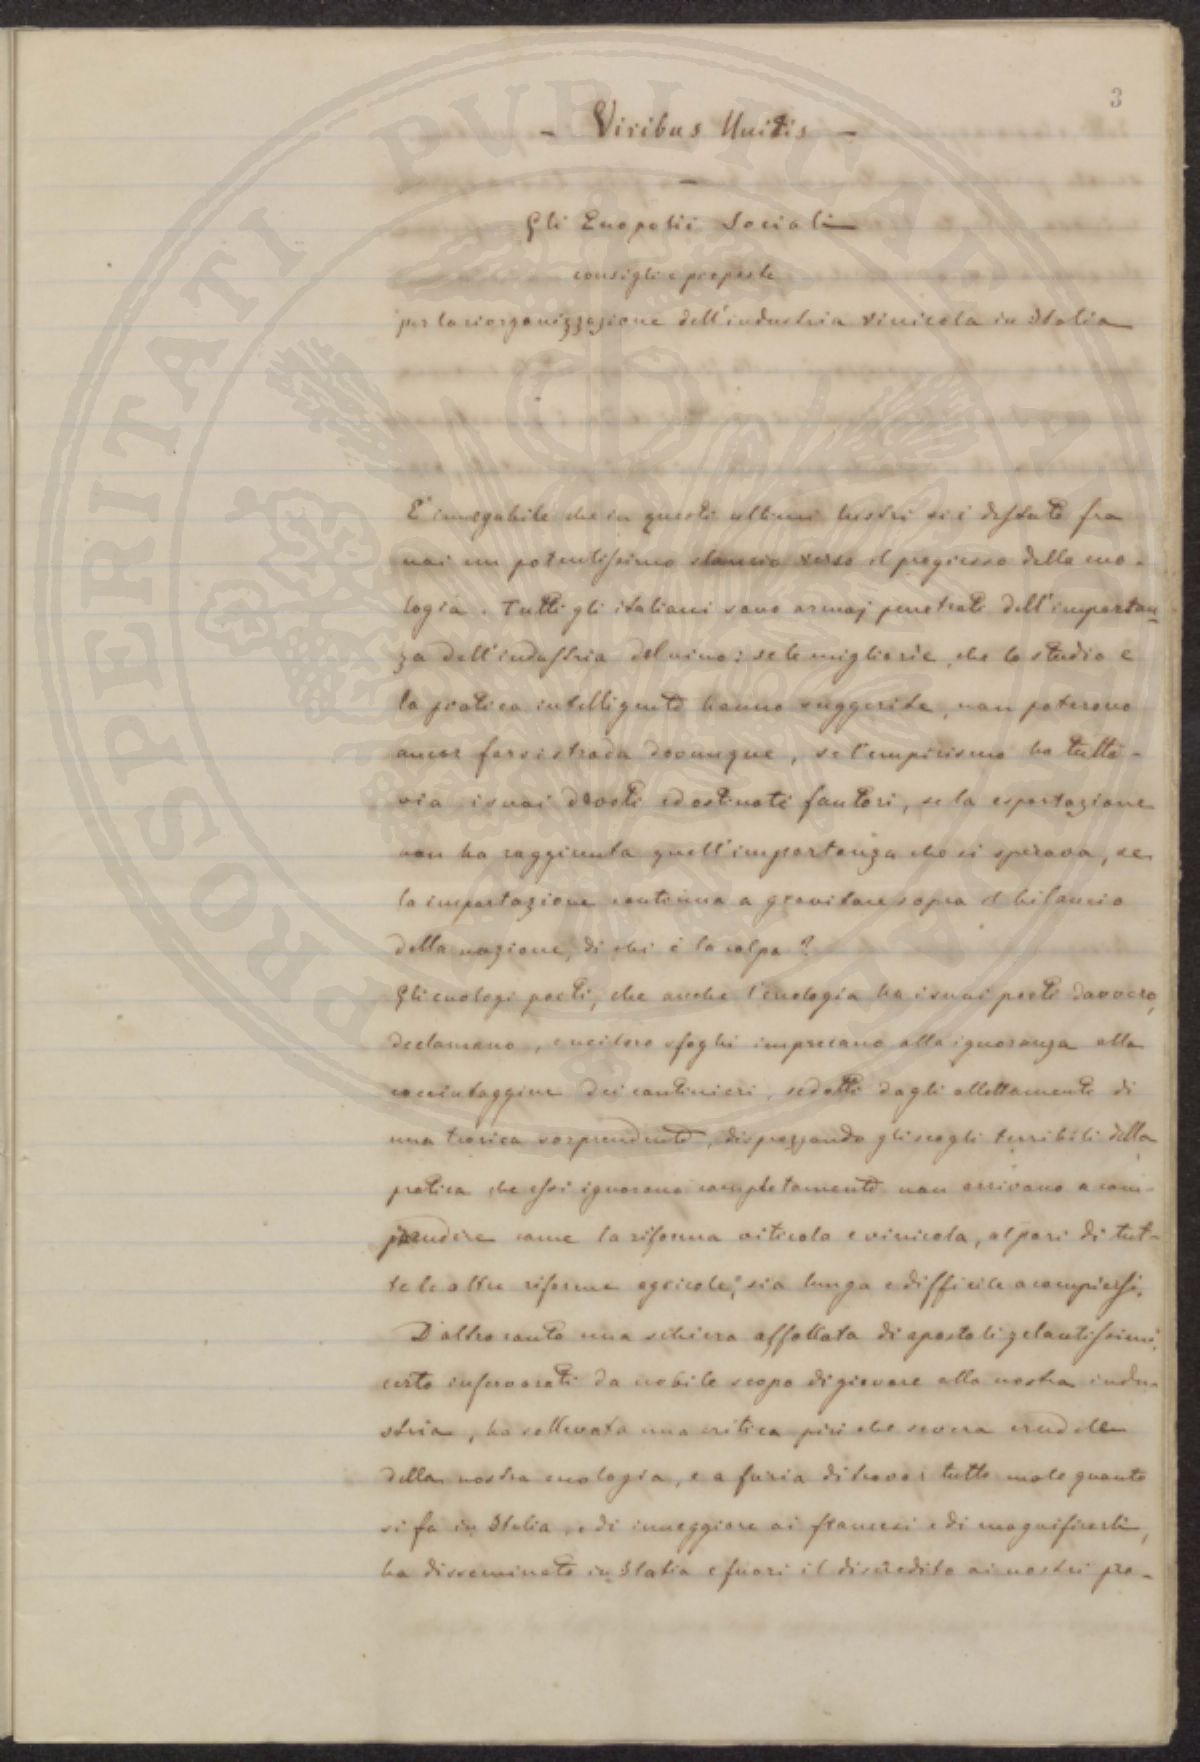 3
- Viribus Unitis -
Gli Enopolii Sociali
consigli e proposte
per la riorganizzazione dell'industria vinicola in Italia
È innegabile che in questi ultimi lustri si è destato fra
noi un potentissimo slancio verso il progresso della eno-
logia. Tutti gli italiani sono ormaj penetrati dell'importan-
za dell'industria del vino: se le migliorie, che lo studio e
la pratica intelligente hanno suggerite, non poterono
ancor farsi strada dovunque, se l'empirismo ha tutta-
via i suoi devoti ed ostinati fautori, se la esportazione
non ha raggiunta quell'importanza che si sperava, se
la importazione continua a gravitare sopra il bilancio
della nazione, di chi è la colpa?
Gli enologi poeti, che anche l'enologia ha i suoi poeti davvero,
declamano, e nei loro sfoghi imprecano alla ignoranza alla
cocciutaggine dei cantinieri, sedotti dagli allettamenti di
una teorica sorprendente, disprezzando gli scogli terribili della
pratica che essi ignorano completamente non arrivano a com-
prendere come la riforma viticola e vinicola, al pari di tut-
te le altre riforme agricole, sia lunga e difficile a compiersi.
D'altro canto una schiera affollata di apostoli zelantissimi,
certo infervorati da nobile scopo di giovare alla nostra indu-
stria, ha sollevata una critica più che severa crudele
della nostra enologia, e a furia di trovar tutto male quanto
si fa in Italia, e di inneggiare ai francesi e di magnificarli,
ha disseminato in Italia e fuori il discredito ai nostri pro-
PROSPERITATI PUBLICAE AUGENDAE